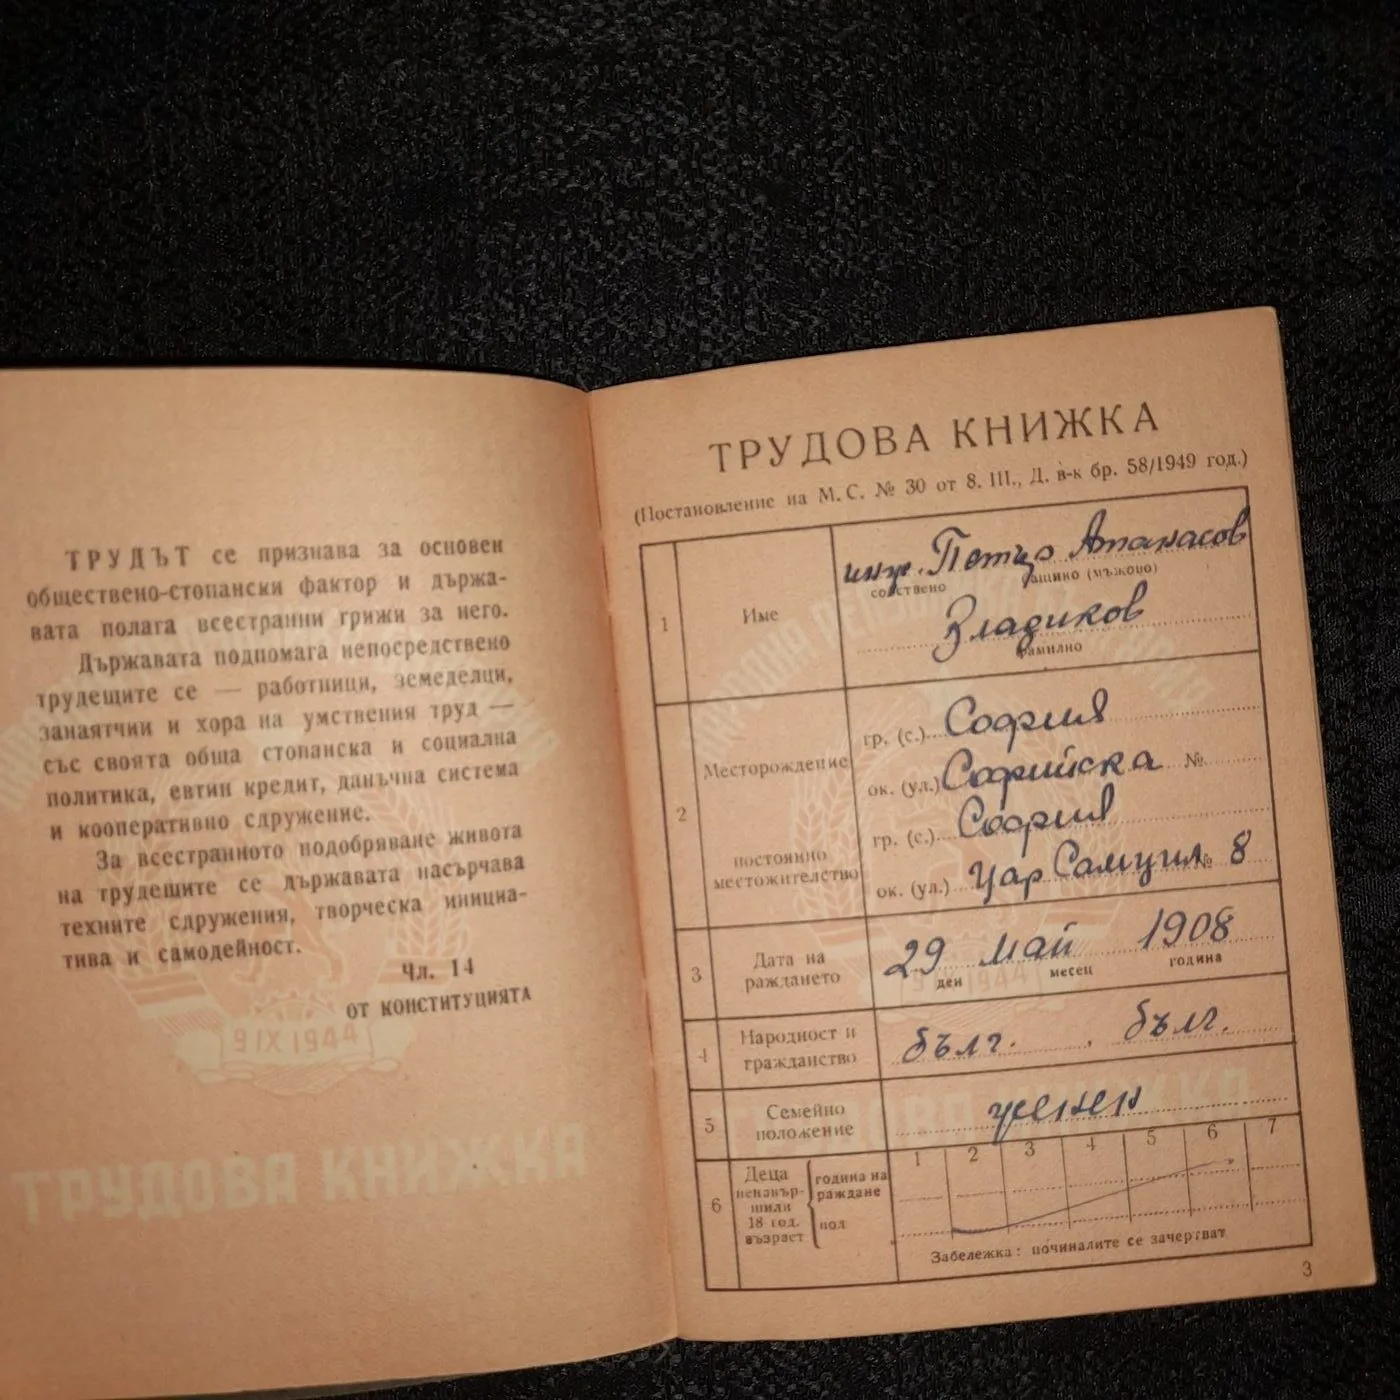 ТРУДЪТ се признава за основен
обществено-стопански фактор и държа-
вата полага всестранни грижи за него.
Държавата подпомага непосредствено
трудещите се — работници, земеделци,
занаятчии и хора на умствения труд —
със своята обща стопанска и социална
политика, евтин кредит, данъчна система
и кооперативно сдружение.
За всестранното подобряване живота
на трудещите се държавата насърчава
техните сдружения, творческа инициа-
тива и самодейност.
Чл. 14
от КОНСТИТУЦИЯТА
9 IX 1944
ТРУДОВА КНИЖКА
ТРУДОВА КНИЖКА
(Постановление на М. С. № 30 от 8. III., Д. в-к бр. 58/1949 год.)
1 Име инж. Петър Атанасов
собствено бащино (мъжово)
Владиков
фамилно
2 Месторождение гр. (с.) София
ок. (ул.) Софийска №
постоянно местожителство гр. (с.) София
ок. (ул.) Цар Самуил № 8
3 Дата на раждането 29 май 1908
ден месец година
4 Народност и гражданство бълг. , бълг.
5 Семейно положение женен
6 Деца ненавършили 18 год. възраст
година на раждане
пол
1 2 3 4 5 6 7
Забележка: починалите се зачертват
3